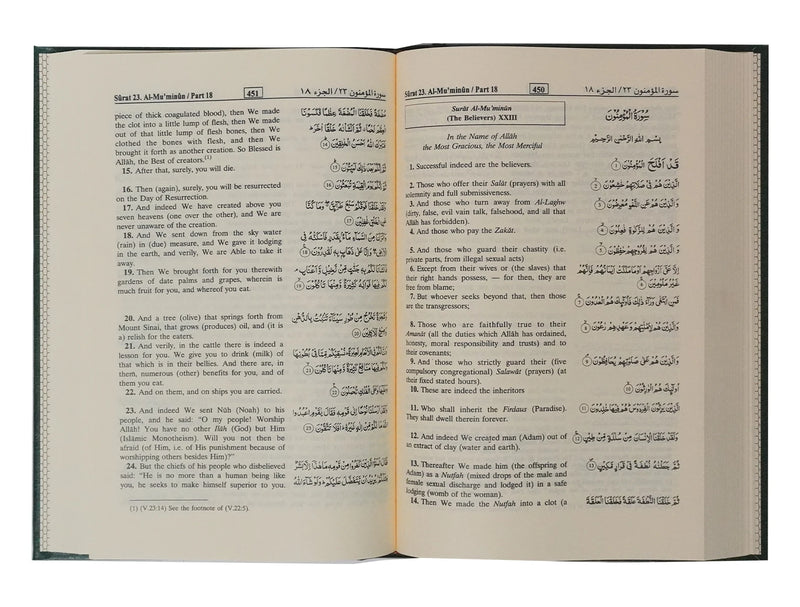 Sûrat 23. Al-Mu'minûn / Part 18
450
سورة المؤمنون ٢٣ / الجزء ١٨
Sûrat Al-Mu'minûn
(The Believers) XXIII
In the Name of Allâh
the Most Gracious, the Most Merciful
1. Successful indeed are the believers.
2. Those who offer their Salât (prayers) with all
solemnity and full submissiveness.
3. And those who turn away from Al-Laghw
(dirty, false, evil vain talk, falsehood, and all that
Allâh has forbidden).
4. And those who pay the Zakât.
5. And those who guard their chastity (i.e.
private parts, from illegal sexual acts)
6. Except from their wives or (the slaves) that
their right hands possess, — for then, they are
free from blame;
7. But whoever seeks beyond that, then those
are the transgressors;
8. Those who are faithfully true to their
Amanât (all the duties which Allâh has ordained,
honesty, moral responsibility and trusts) and to
their covenants;
9. And those who strictly guard their (five
compulsory congregational) Salawât (prayers) (at
their fixed stated hours).
10. These are indeed the inheritors
11. Who shall inherit the Firdaus (Paradise).
They shall dwell therein forever.
12. And indeed We created man (Adam) out of
an extract of clay (water and earth).
13. Thereafter We made him (the offspring of
Adam) as a Nutfah (mixed drops of the male and
female sexual discharge and lodged it) in a safe
lodging (womb of the woman).
14. Then We made the Nutfah into a clot (a
سورة المؤمنون
بسم الله الرحمن الرحيم
قد أفلح المؤمنون ١
الذين هم في صلاتهم خاشعون ٢
والذين هم عن اللغو معرضون ٣
والذين هم للزكوة فاعلون ٤
والذين هم لفروجهم حافظون ٥
إلا على أزواجهم أو ما ملكت أيمانهم فإنهم
غير ملومين ٦
فمن ابتغى وراء ذلك فأولئك هم العادون ٧
والذين هم لأماناتهم وعهدهم راعون ٨
والذين هم على صلواتهم يحافظون ٩
أولئك هم الوارثون ١٠
الذين يرثون الفردوس هم فيها خالدون ١١
ولقد خلقنا الإنسان من سلالة من طين ١٢
ثم جعلناه نطفة في قرار مكين ١٣
ثم خلقنا النطفة علقة فخلقنا العلقة
Sûrat 23. Al-Mu'minûn / Part 18
451
سورة المؤمنون ٢٣ / الجزء ١٨
piece of thick coagulated blood), then We made
the clot into a little lump of flesh, then We made
out of that little lump of flesh bones, then We
clothed the bones with flesh, and then We
brought it forth as another creation. So Blessed is
Allâh, the Best of creators.(1)
15. After that, surely, you will die.
16. Then (again), surely, you will be resurrected
on the Day of Resurrection.
17. And indeed We have created above you
seven heavens (one over the other), and We are
never unaware of the creation.
18. And We sent down from the sky water
(rain) in (due) measure, and We gave it lodging
in the earth, and verily, We are Able to take it
away.
19. Then We brought forth for you therewith
gardens of date palms and grapes, wherein is
much fruit for you, and whereof you eat.
20. And a tree (olive) that springs forth from
Mount Sinai, that grows (produces) oil, and (it is
a) relish for the eaters.
21. And verily, in the cattle there is indeed a
lesson for you. We give you to drink (milk) of
that which is in their bellies. And there are, in
them, numerous (other) benefits for you, and of
them you eat.
22. And on them, and on ships you are carried.
23. And indeed We sent Nûh (Noah) to his
people, and he said: "O my people! Worship
Allâh! You have no other Ilâh (God) but Him
(Islâmic Monotheism). Will you not then be
afraid (of Him, i.e. of His punishment because of
worshipping others besides Him)?"
24. But the chiefs of his people who disbelieved
said: "He is no more than a human being like
you, he seeks to make himself superior to you.
(1) (V.23:14) See the footnote of (V.22:5).